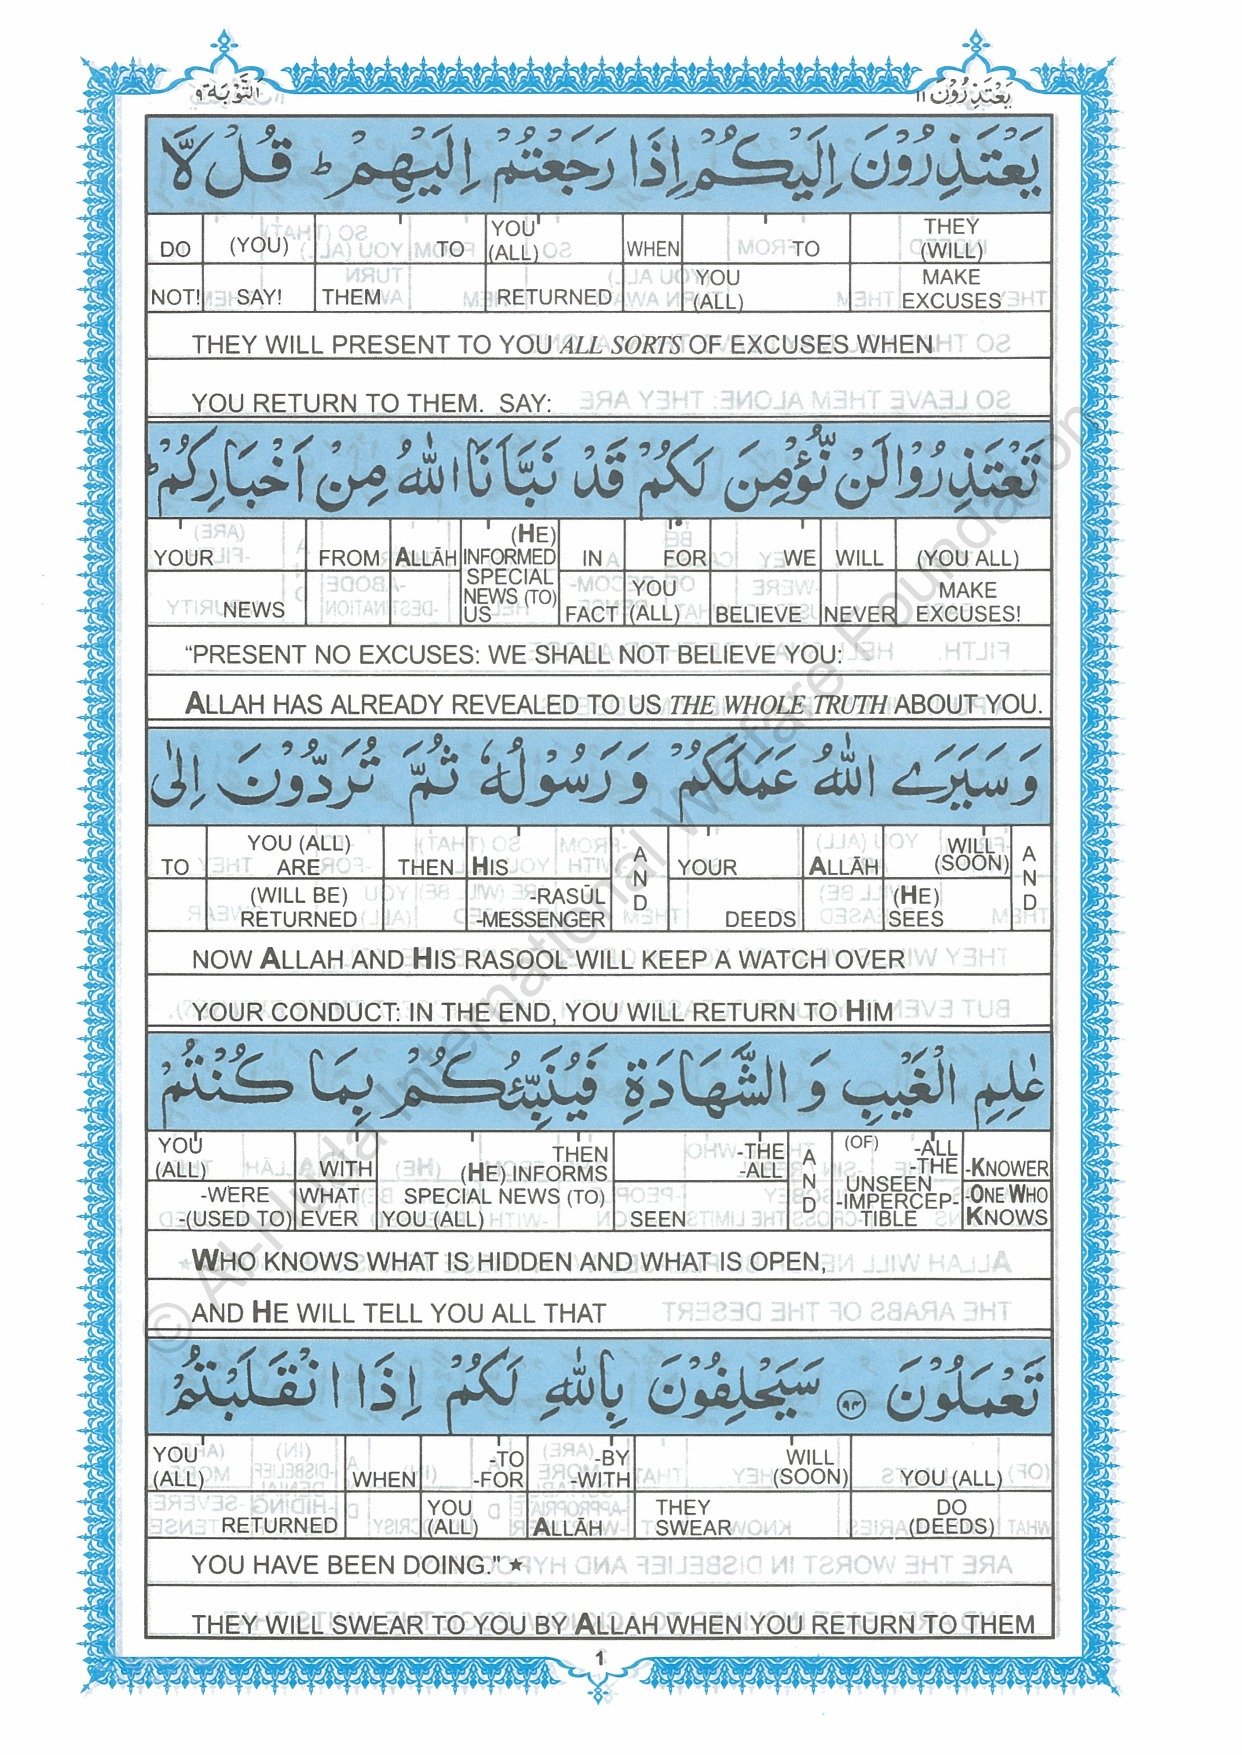 التَّوْبَة ٩
يَعْتَذِرُوْنَ ١١
يَعْتَذِرُوْنَ اِلَيْكُمْ اِذَا رَجَعْتُمْ اِلَيْهِمْ ؕ قُلْ لَّا
DO NOT! (YOU) SAY! TO THEM YOU (ALL) RETURNED WHEN TO YOU (ALL) THEY (WILL) MAKE EXCUSES
THEY WILL PRESENT TO YOU ALL SORTS OF EXCUSES WHEN
YOU RETURN TO THEM. SAY:
تَعْتَذِرُوْا لَنْ نُّؤْمِنَ لَكُمْ قَدْ نَبَّاَنَا اللّٰهُ مِنْ اَخْبَارِكُمْ ؕ
YOUR NEWS FROM ALLĀH (HE) INFORMED SPECIAL NEWS (TO) US IN FACT FOR YOU (ALL) WE BELIEVE WILL NEVER (YOU ALL) MAKE EXCUSES!
“PRESENT NO EXCUSES: WE SHALL NOT BELIEVE YOU:
ALLAH HAS ALREADY REVEALED TO US THE WHOLE TRUTH ABOUT YOU.
وَ سَيَرَى اللّٰهُ عَمَلَكُمْ وَ رَسُوْلُهٗ ثُمَّ تُرَدُّوْنَ اِلٰى
TO YOU (ALL) ARE (WILL BE) RETURNED THEN HIS -RASŪL -MESSENGER AND YOUR DEEDS ALLĀH WILL (SOON) (HE) SEES AND
NOW ALLAH AND HIS RASOOL WILL KEEP A WATCH OVER
YOUR CONDUCT: IN THE END, YOU WILL RETURN TO HIM
عٰلِمِ الْغَيْبِ وَ الشَّهَادَةِ فَيُنَبِّئُكُمْ بِمَا كُنْتُمْ
YOU (ALL) -WERE -(USED TO) WITH WHAT EVER THEN (HE) INFORMS SPECIAL NEWS (TO) YOU (ALL) -THE -ALL SEEN AND (OF) -ALL -THE UNSEEN -IMPERCEP- TIBLE -KNOWER -ONE WHO KNOWS
WHO KNOWS WHAT IS HIDDEN AND WHAT IS OPEN,
AND HE WILL TELL YOU ALL THAT
تَعْمَلُوْنَ ﴿٩٤﴾ سَيَحْلِفُوْنَ بِاللّٰهِ لَكُمْ اِذَا انْقَلَبْتُمْ
YOU (ALL) RETURNED WHEN -TO -FOR YOU (ALL) -BY -WITH ALLĀH WILL (SOON) THEY SWEAR YOU (ALL) DO (DEEDS)
YOU HAVE BEEN DOING." ★
THEY WILL SWEAR TO YOU BY ALLAH WHEN YOU RETURN TO THEM
1
© Al-Huda International Welfare Foundation